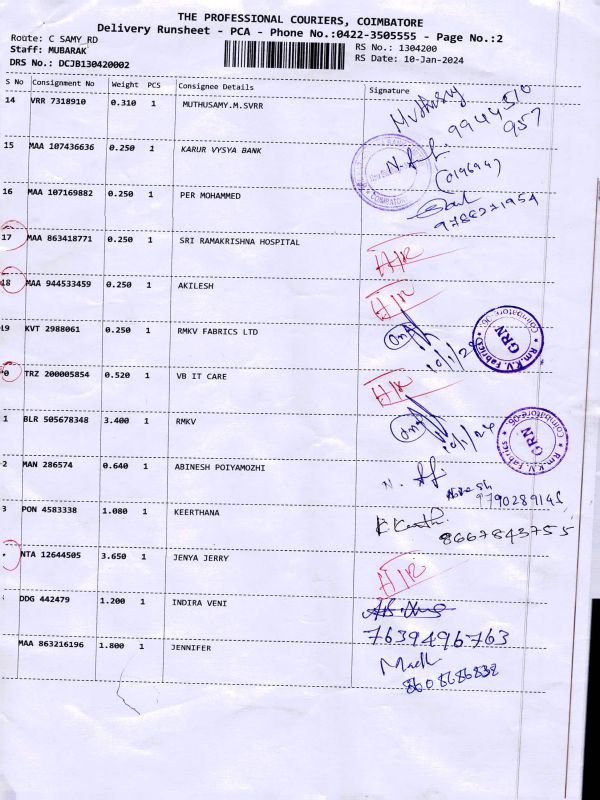 THE PROFESSIONAL COURIERS, COIMBATORE
Delivery Runsheet - PCA - Phone No.:0422-3505555 - Page No.:2
Route: C SAMY RD
Staff: MUBARAK
DRS No.: DCJB130420002
RS No.: 1304200
RS Date: 10-Jan-2024
S No Consignment No Weight PCS Consignee Details Signature
14 VRR 7318910 0.310 1 MUTHUSAMY.M.SVRR
9944510
957
15 MAA 107436636 0.250 1 KARUR VYSYA BANK
COIMBATORE
16 MAA 107169882 0.250 1 PER MOHAMMED
9788271954
17 MAA 863418771 0.250 1 SRI RAMAKRISHNA HOSPITAL
18 MAA 944533459 0.250 1 AKILESH
19 KVT 2988061 0.250 1 RMKV FABRICS LTD
10/1/24
GRN
R.m.K.V. Fabrics
Coimbatore
0 TRZ 200005854 0.520 1 VB IT CARE
1 BLR 505678348 3.400 1 RMKV
10/1/24
GRN
R.m.K.V. Fabrics
Coimbatore-06
2 MAN 286574 0.640 1 ABINESH POIYAMOZHI
3 PON 4583338 1.080 1 KEERTHANA
K. Keerth
8667843755
NTA 12644505 3.650 1 JENYA JERRY
DDG 442479 1.200 1 INDIRA VENI
7639496763
MAA 863216196 1.800 1 JENNIFER
8608686838